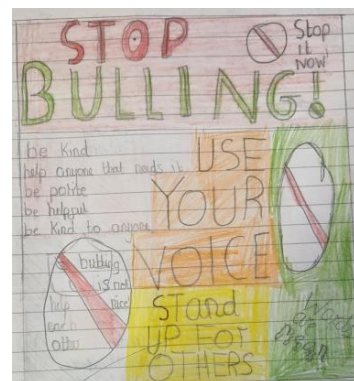 STOP
Stop
it
NOW!
BULLING!
be kind
help anyone that needs it
be polite
be helpful
be kind to anyone
USE
YOUR
VOICE
bulling
is not
nice
help
each
other
Stand
UP FOR
OTHERS
Words